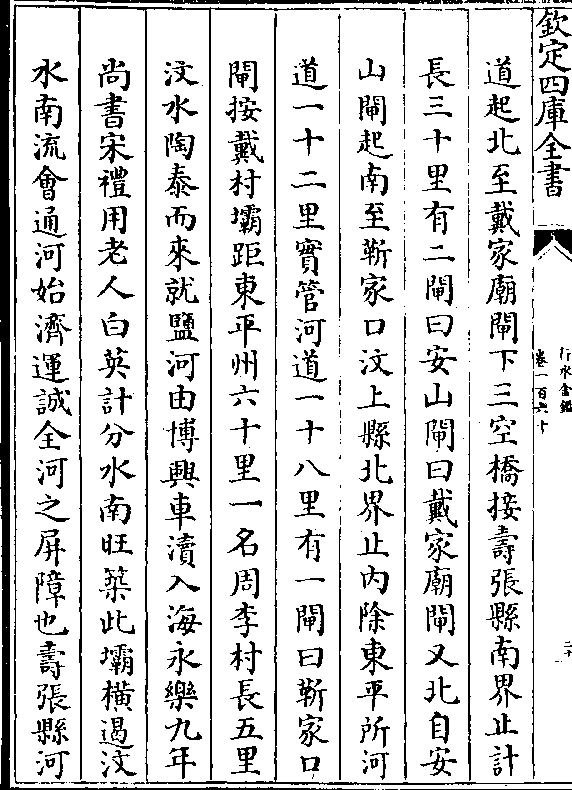 欽定四庫全書
行水金鑑
卷一百六十
道起北至戴家廟閘下三空橋接壽張縣南界止計
長三十里有二閘曰安山閘曰戴家廟閘又北自安
山閘起南至靳家口汶上縣北界止内除東平所河
道一十二里實管河道一十八里有一閘曰靳家口
閘按戴村壩距東平州六十里一名周李村長五里
汶水陶泰而來就鹽河由博興車瀆入海永樂九年
尚書宋禮用老人白英計分水南旺築此壩橫遏汶
水南流會通河始濟運誠全河之屏障也壽張縣河